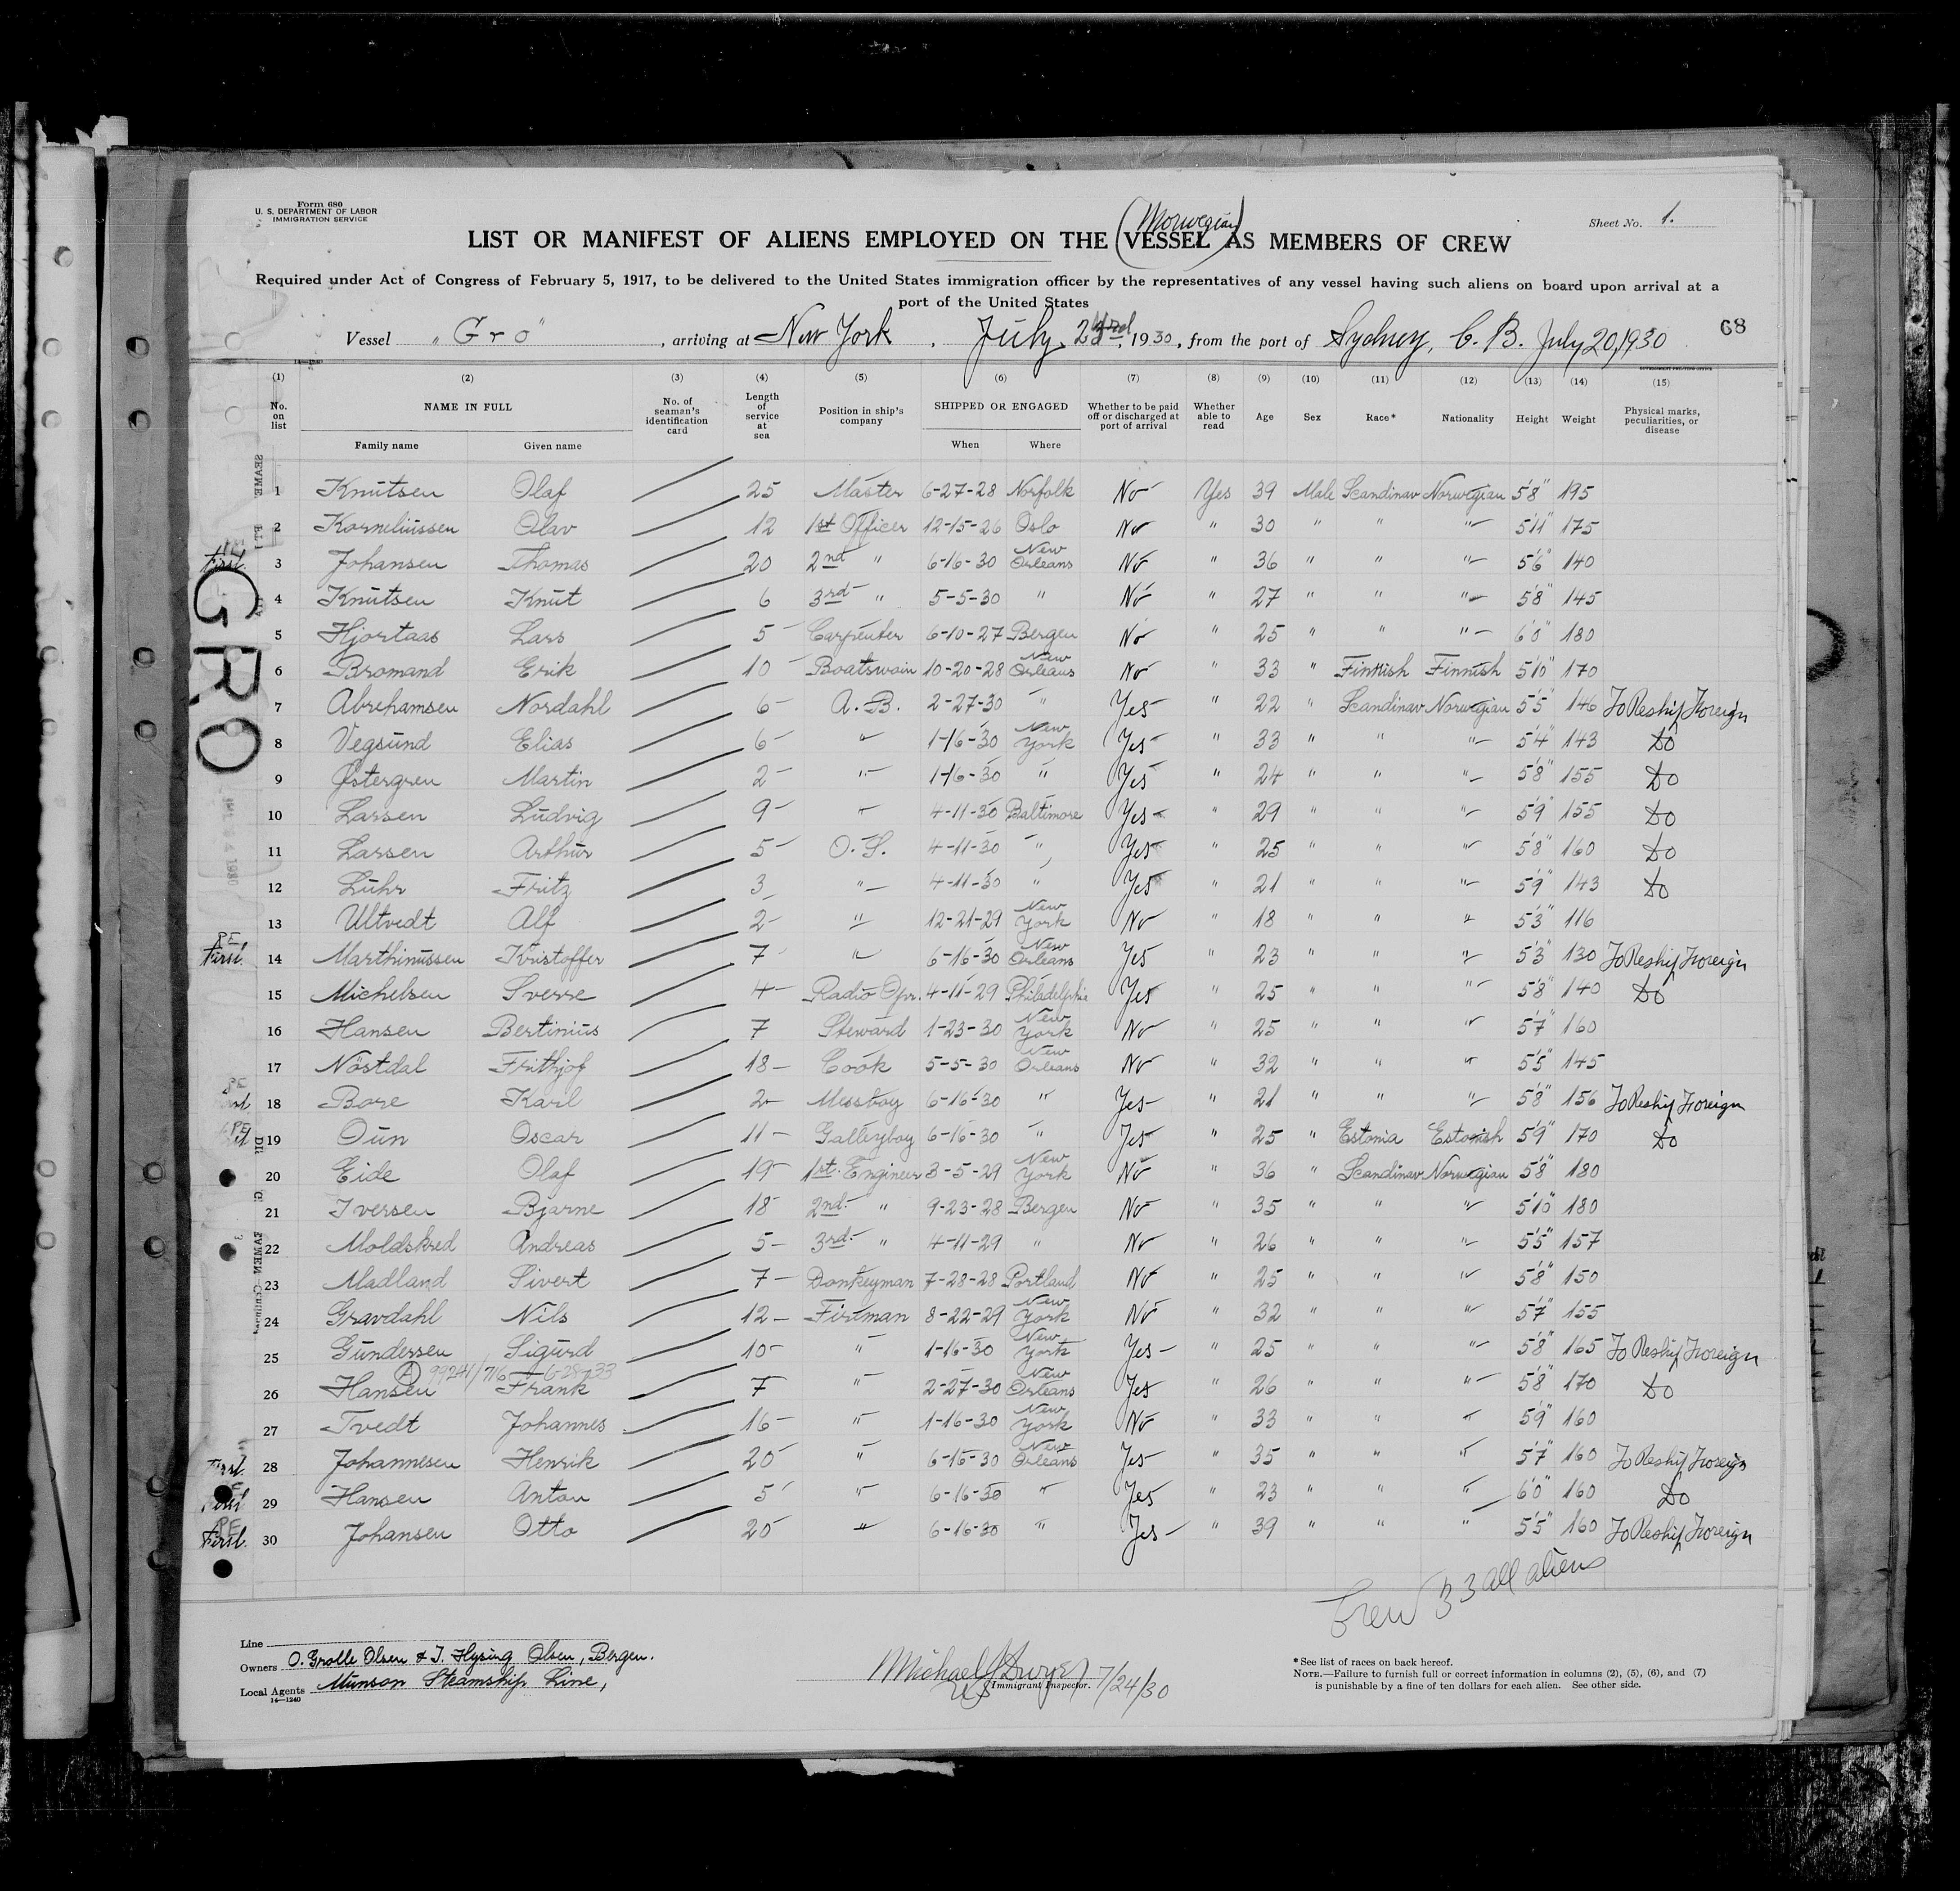 Form 680
U. S. DEPARTMENT OF LABOR
IMMIGRATION SERVICE
Sheet No. 1.
(Norwegian)
LIST OR MANIFEST OF ALIENS EMPLOYED ON THE VESSEL AS MEMBERS OF CREW
Required under Act of Congress of February 5, 1917, to be delivered to the United States immigration officer by the representatives of any vessel having such aliens on board upon arrival at a
port of the United States
Vessel "Gro", arriving at New York, July 23rd, 1930, from the port of Sydney, C. B. July 20, 1930
68
(1) (2) (3) (4) (5) (6) (7) (8) (9) (10) (11) (12) (13) (14) (15)
No. on list NAME IN FULL No. of seaman's identification card Length of service at sea Position in ship's company SHIPPED OR ENGAGED Whether to be paid off or discharged at port of arrival Whether able to read Age Sex Race* Nationality Height Weight Physical marks, peculiarities, or disease
Family name Given name When Where
1 Knutsen Olaf 25 Master 6-27-28 Norfolk No Yes 39 Male Scandinav Norwegian 5'8" 195
2 Korneliussen Olav 12 1st Officer 12-15-26 Oslo No " 30 " " " 5'11" 175
First. 3 Johansen Thomas 20 2nd " 6-16-30 New Orleans No " 36 " " " 5'6" 140
4 Knutsen Knut 6 3rd " 5-5-30 " No " 27 " " " 5'8" 145
5 Hjortaas Lars 5 Carpenter 6-10-27 Bergen No " 25 " " " 6'0" 180
6 Bromand Erik 10 Boatswain 10-20-28 New Orleans No " 33 " Finnish Finnish 5'10" 170
7 Abrehamsen Nordahl 6 A. B. 2-27-30 " Yes " 22 " Scandinav Norwegian 5'5" 146 To Reship Foreign
8 Vegsund Elias 6 " 1-16-30 New York Yes " 33 " " " 5'4" 143 Do
9 Østergren Martin 2 " 1-16-30 " Yes " 24 " " " 5'8" 155 Do
10 Larsen Ludvig 9 " 4-11-30 Baltimore Yes " 29 " " " 5'9" 155 Do
11 Larsen Arthur 5 O. S. 4-11-30 " Yes " 25 " " " 5'8" 160 Do
12 Luhr Fritz 3 " 4-11-30 " Yes " 21 " " " 5'9" 143 Do
13 Ultvedt Alf 2 " 12-21-29 New York No " 18 " " " 5'3" 116
PE First. 14 Marthinussen Kristoffer 7 " 6-16-30 New Orleans Yes " 23 " " " 5'3" 130 To Reship Foreign
15 Michelsen Sverre 4 Radio Opr. 4-11-29 Philadelphia Yes " 25 " " " 5'8" 140 Do
16 Hansen Bertinius 7 Steward 1-23-30 New York No " 25 " " " 5'7" 160
17 Nöstdal Frithjof 18 Cook 5-5-30 New Orleans No " 32 " " " 5'5" 145
18 Bore Karl 2 Messboy 6-16-30 " Yes " 21 " " " 5'8" 156 To Reship Foreign
PE 19 Oun Oscar 11 Galleyboy 6-16-30 " Yes " 25 " Estonia Estonish 5'9" 170 Do
20 Eide Olaf 19 1st. Engineer 3-5-29 New York No " 36 " Scandinav Norwegian 5'8" 180
21 Iversen Bjarne 18 2nd. " 9-23-28 Bergen No " 35 " " " 5'10" 180
22 Moldskred Andreas 5 3rd. " 4-11-29 " No " 26 " " " 5'5" 157
23 Madland Sivert 7 Donkeyman 7-28-28 Portland No " 25 " " " 5'8" 150
24 Gravdahl Nils 12 Fireman 8-22-29 New York No " 32 " " " 5'7" 155
25 Gundersen Sigurd 10 " 1-16-30 New York Yes " 25 " " " 5'8" 165 To Reship Foreign
(A) 99241/716 6-28-33
26 Hansen Frank 7 " 2-27-30 New Orleans Yes " 26 " " " 5'8" 170 Do
27 Tvedt Johannes 16 " 1-16-30 New York No " 33 " " " 5'9" 160
First. 28 Johannesen Henrik 20 " 6-16-30 New Orleans Yes " 35 " " " 5'7" 160 To Reship Foreign
First 29 Hansen Anton 5 " 6-16-30 " Yes " 23 " " " 6'0" 160 Do
PE First. 30 Johansen Otto 20 " 6-16-30 " Yes " 39 " " " 5'5" 160 To Reship Foreign
GRO
Crew 33 all aliens
Line
Owners O. Grolle Olsen & I. Hysing Olsen, Bergen.
Local Agents Munson Steamship Line,
14—1240
Michael J Dwyer 7/24/30
US Immigrant Inspector.
* See list of races on back hereof.
NOTE.—Failure to furnish full or correct information in columns (2), (5), (6), and (7)
is punishable by a fine of ten dollars for each alien. See other side.